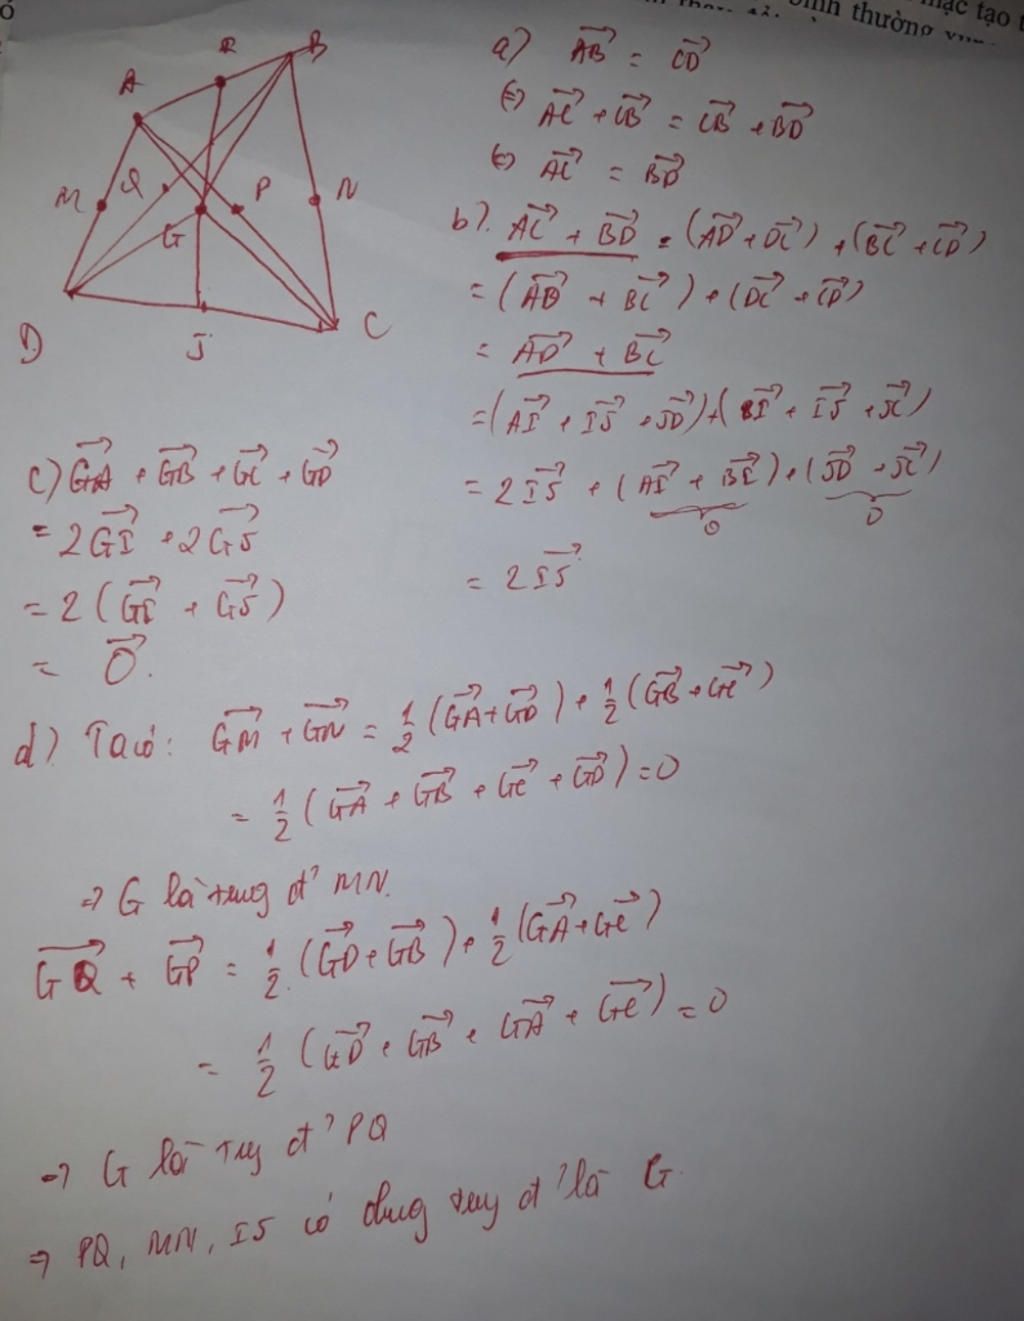 ạc tạo t
ình thường
R
B
A
M
Q
P
N
G
D
J
C
a) AB→ = CD→
⇔ AC→ + CB→ = CB→ + BD→
⇔ AC→ = BD→
b) AC→ + BD→ = (AD→ + DC→) + (BC→ + CD→)
= (AD→ + BC→) + (DC→ + CD→)
= AD→ + BC→
= (AI→ + IJ→ + JD→) + (BI→ + IJ→ + JC→)
= 2IJ→ + (AI→ + BI→) + (JD→ + JC→)
0 0
= 2IJ→
c) GA→ + GB→ + GC→ + GD→
= 2GI→ + 2GJ→
= 2(GI→ + GJ→)
= O→.
d) Ta có: GM→ + GN→ = 1/2 (GA→ + GD→) + 1/2 (GB→ + GC→)
= 1/2 (GA→ + GB→ + GC→ + GD→) = 0
⇒ G là trung đ' MN.
GQ→ + GP→ = 1/2 (GD→ + GB→) + 1/2 (GA→ + GC→)
= 1/2 (GD→ + GB→ + GA→ + GC→) = 0
⇒ G là trg đ' PQ
⇒ PQ, MN, IJ có chung trg đ' là G.